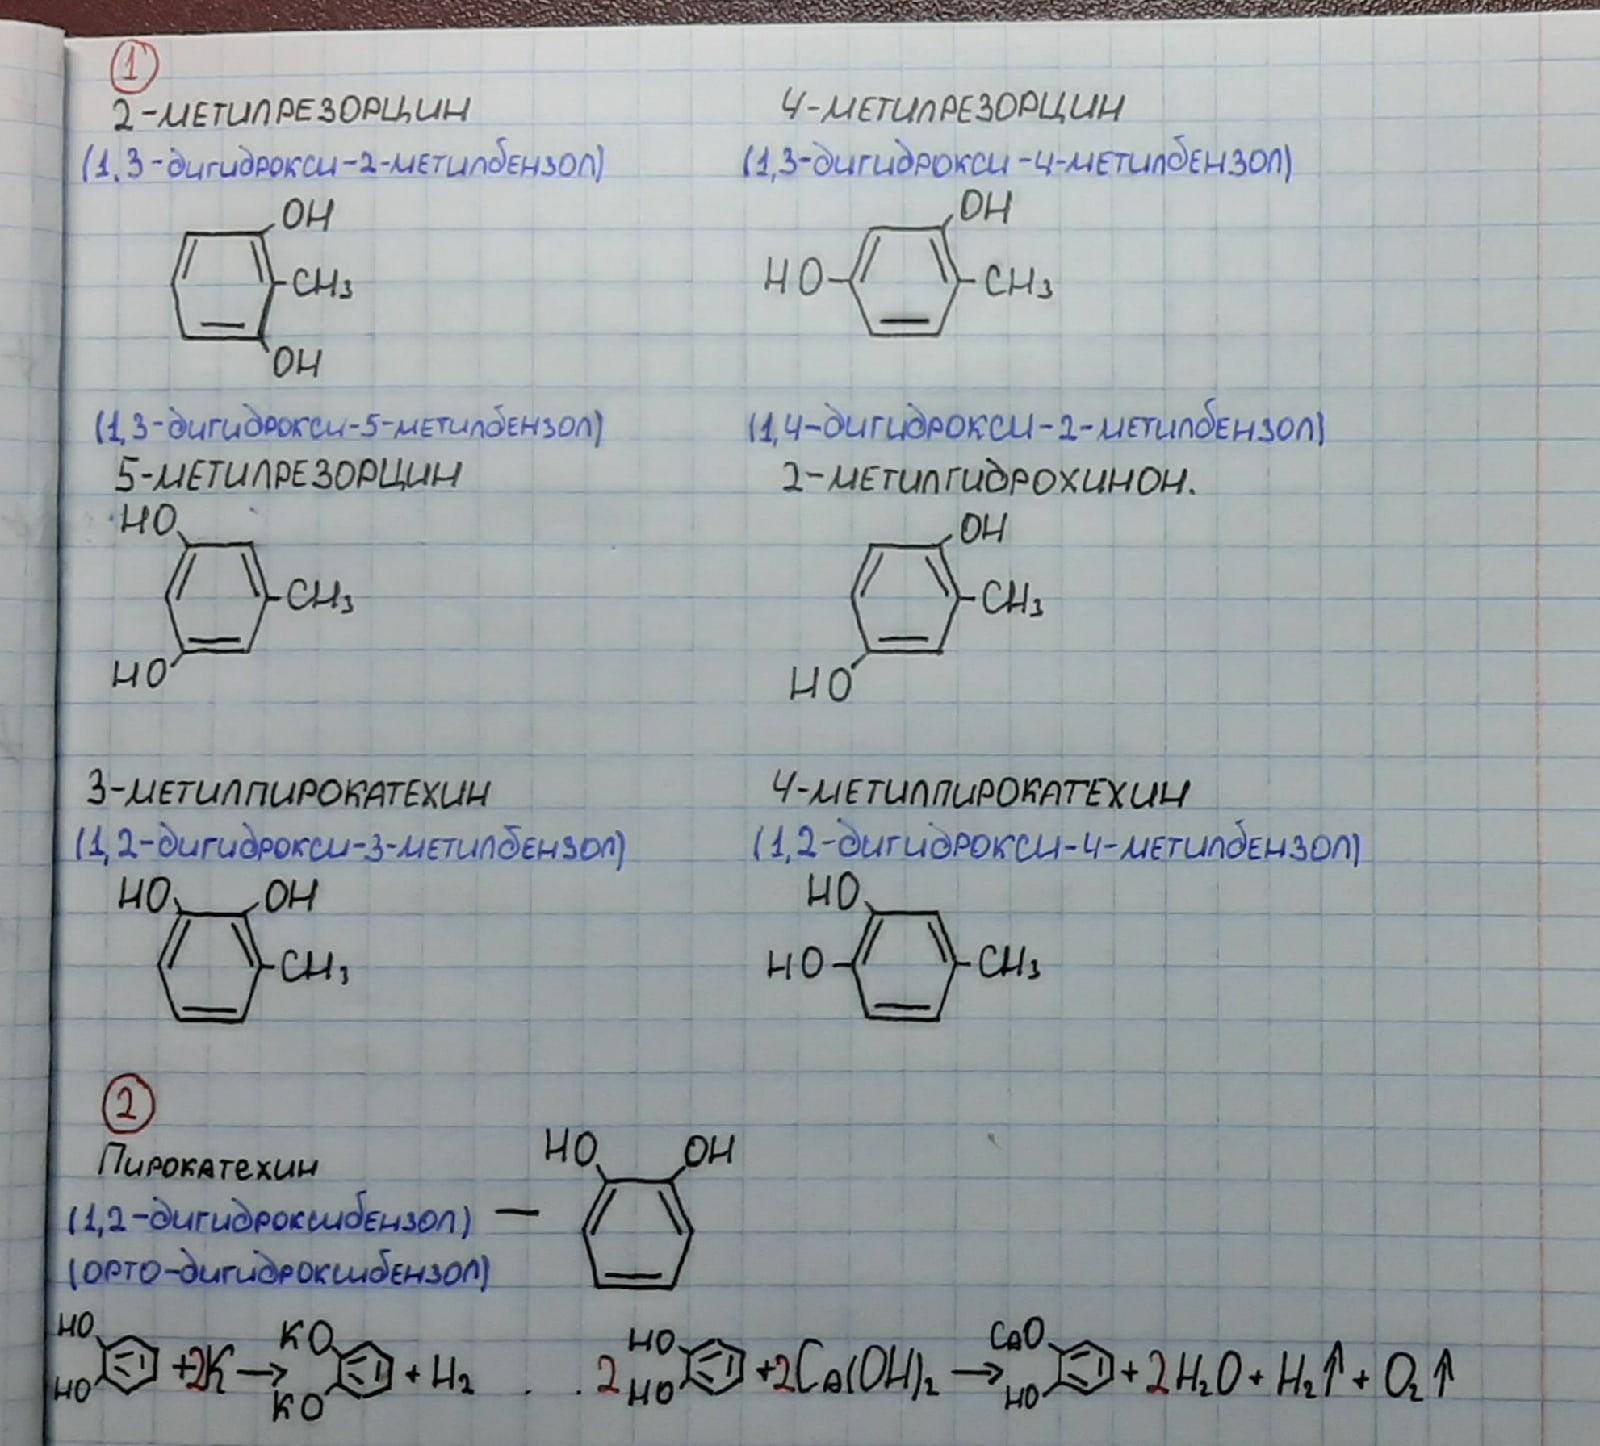 1
2-МЕТИЛРЕЗОРЦИН 4-МЕТИЛРЕЗОРЦИН
(1,3-дигидрокси-2-метилбензол) (1,3-дигидрокси-4-метилбензол)
OH OH
CH3 HO CH3
OH
(1,3-дигидрокси-5-метилбензол) (1,4-дигидрокси-2-метилбензол)
5-МЕТИЛРЕЗОРЦИН 2-МЕТИЛГИДРОХИНОН.
HO OH
CH3 CH3
HO HO
3-МЕТИЛПИРОКАТЕХИН 4-МЕТИЛПИРОКАТЕХИН
(1,2-дигидрокси-3-метилбензол) (1,2-дигидрокси-4-метилбензол)
HO OH HO
CH3 HO CH3
2
Пирокатехин HO OH
(1,2-дигидроксибензол) —
(орто-дигидроксибензол)
HO HO +2K → KO KO + H2 . . 2 HO HO +2Ca(OH)2 → CaO HO + 2H2O + H2↑ + O2↑